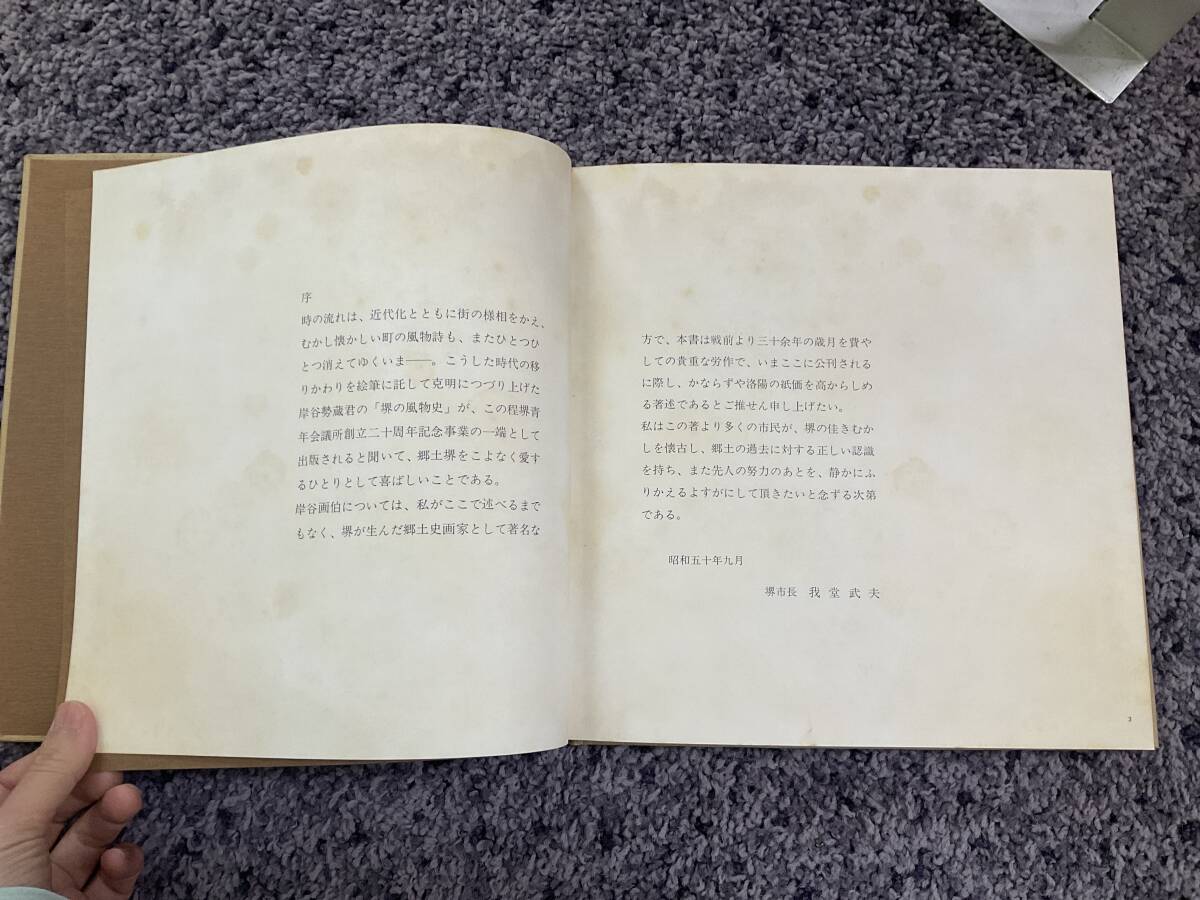 序
時の流れは、近代化とともに街の様相をかえ、
むかし懐かしい町の風物詩も、またひとつひ
とつ消えてゆくいま──。こうした時代の移
りかわりを絵筆に託して克明につづり上げた
岸谷勢蔵君の「堺の風物史」が、この程堺青
年会議所創立二十周年記念事業の一端として
出版されると聞いて、郷土堺をこよなく愛す
るひとりとして喜ばしいことである。
岸谷画伯については、私がここで述べるまで
もなく、堺が生んだ郷土史画家として著名な
方で、本書は戦前より三十余年の歳月を費や
しての貴重な労作で、いまここに公刊される
に際し、かならずや洛陽の紙価を高からしめ
る著述であるとご推せん申し上げたい。
私はこの著より多くの市民が、堺の佳きむか
しを懐古し、郷土の過去に対する正しい認識
を持ち、また先人の努力のあとを、静かにふ
りかえるよすがにして頂きたいと念ずる次第
である。
昭和五十年九月
堺市長 我堂武夫
3